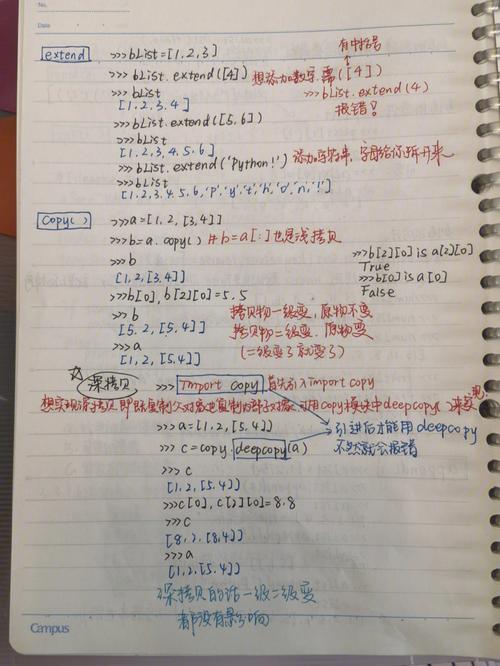 No.
Date
extend >>>bList=[1,2,3]
有中括号
>>>bList.extend([4]) 想添加数字需([4])
>>>bList >>>bList.extend(4)
[1,2,3,4] 报错!
>>>bList.extend([5,6])
>>>bList
[1,2,3,4,5,6]
>>>bList.extend('Python!') 添加字符串,字母给你拆开来
>>>bList
[1,2,3,4,5,6,'p','y','t','h','o','n','!']
copy() >>>a=[1,2,[3,4]]
>>>b=a.copy() #b=a[:]也是浅拷贝
>>>b >>>b[2][0] is a[2][0]
[1,2,[3,4]] True
>>>b[0],b[2][0]=5,5 >>>b[0] is a[0]
False
>>>b 拷贝物一级变,原物不变
[5,2,[5,4]] 拷贝物二级变,原物变
>>>a (二级变了就变了)
[1,2,[5,4]]
深拷贝 >>>Import copy 首先引入import copy
想实现深拷贝,即既复制父对象也复制内部子对象,可用copy模块中deepcopy()来实现
>>>a=[1,2,[5,4]]
引进后才能用deepcopy
>>>c=copy.deepcopy(a) 不然就会报错
>>>c
[1,2,[5,4]]
>>>c[0],c[2][0]=8,8
>>>c
[8,2,[8,4]]
>>>a
[1,2,[5,4]]
深拷贝的话一级二级变
都没有影响
Campus